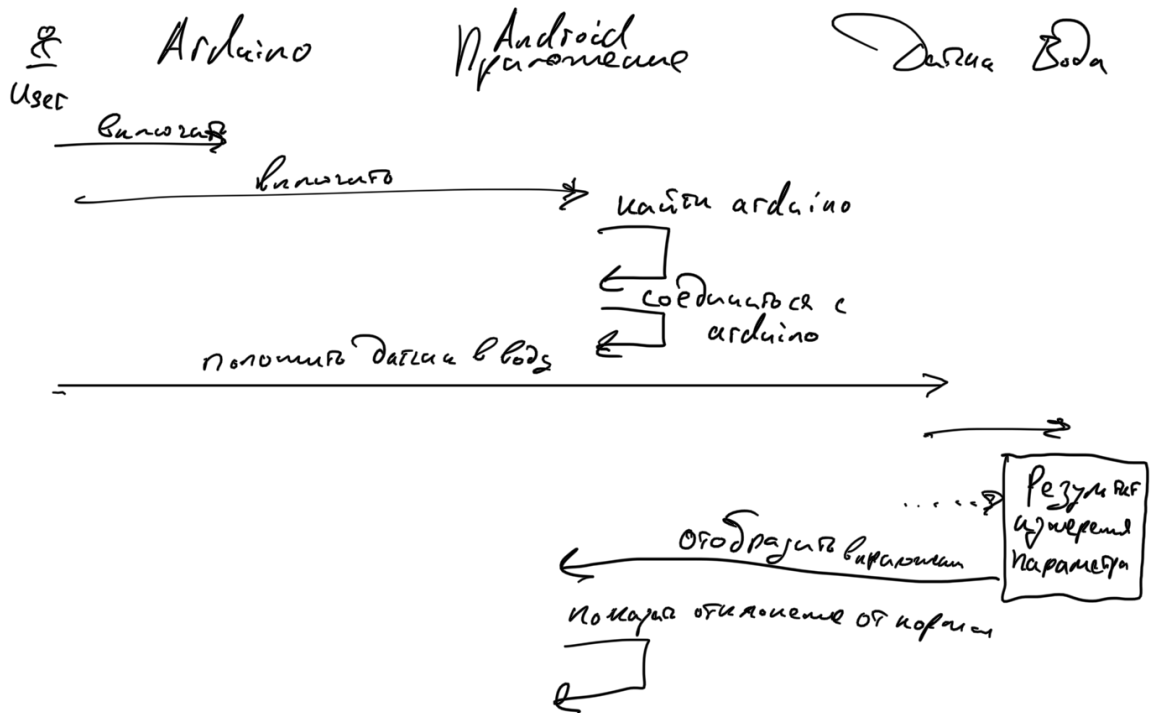 Arduino
Android
Приложение
Датчик
Вода
User
включать
включить
найти arduino
соединиться с
arduino
положить датчик в воду
Результат
измерения
параметра
отобразить в приложении
показать отклонение от нормы